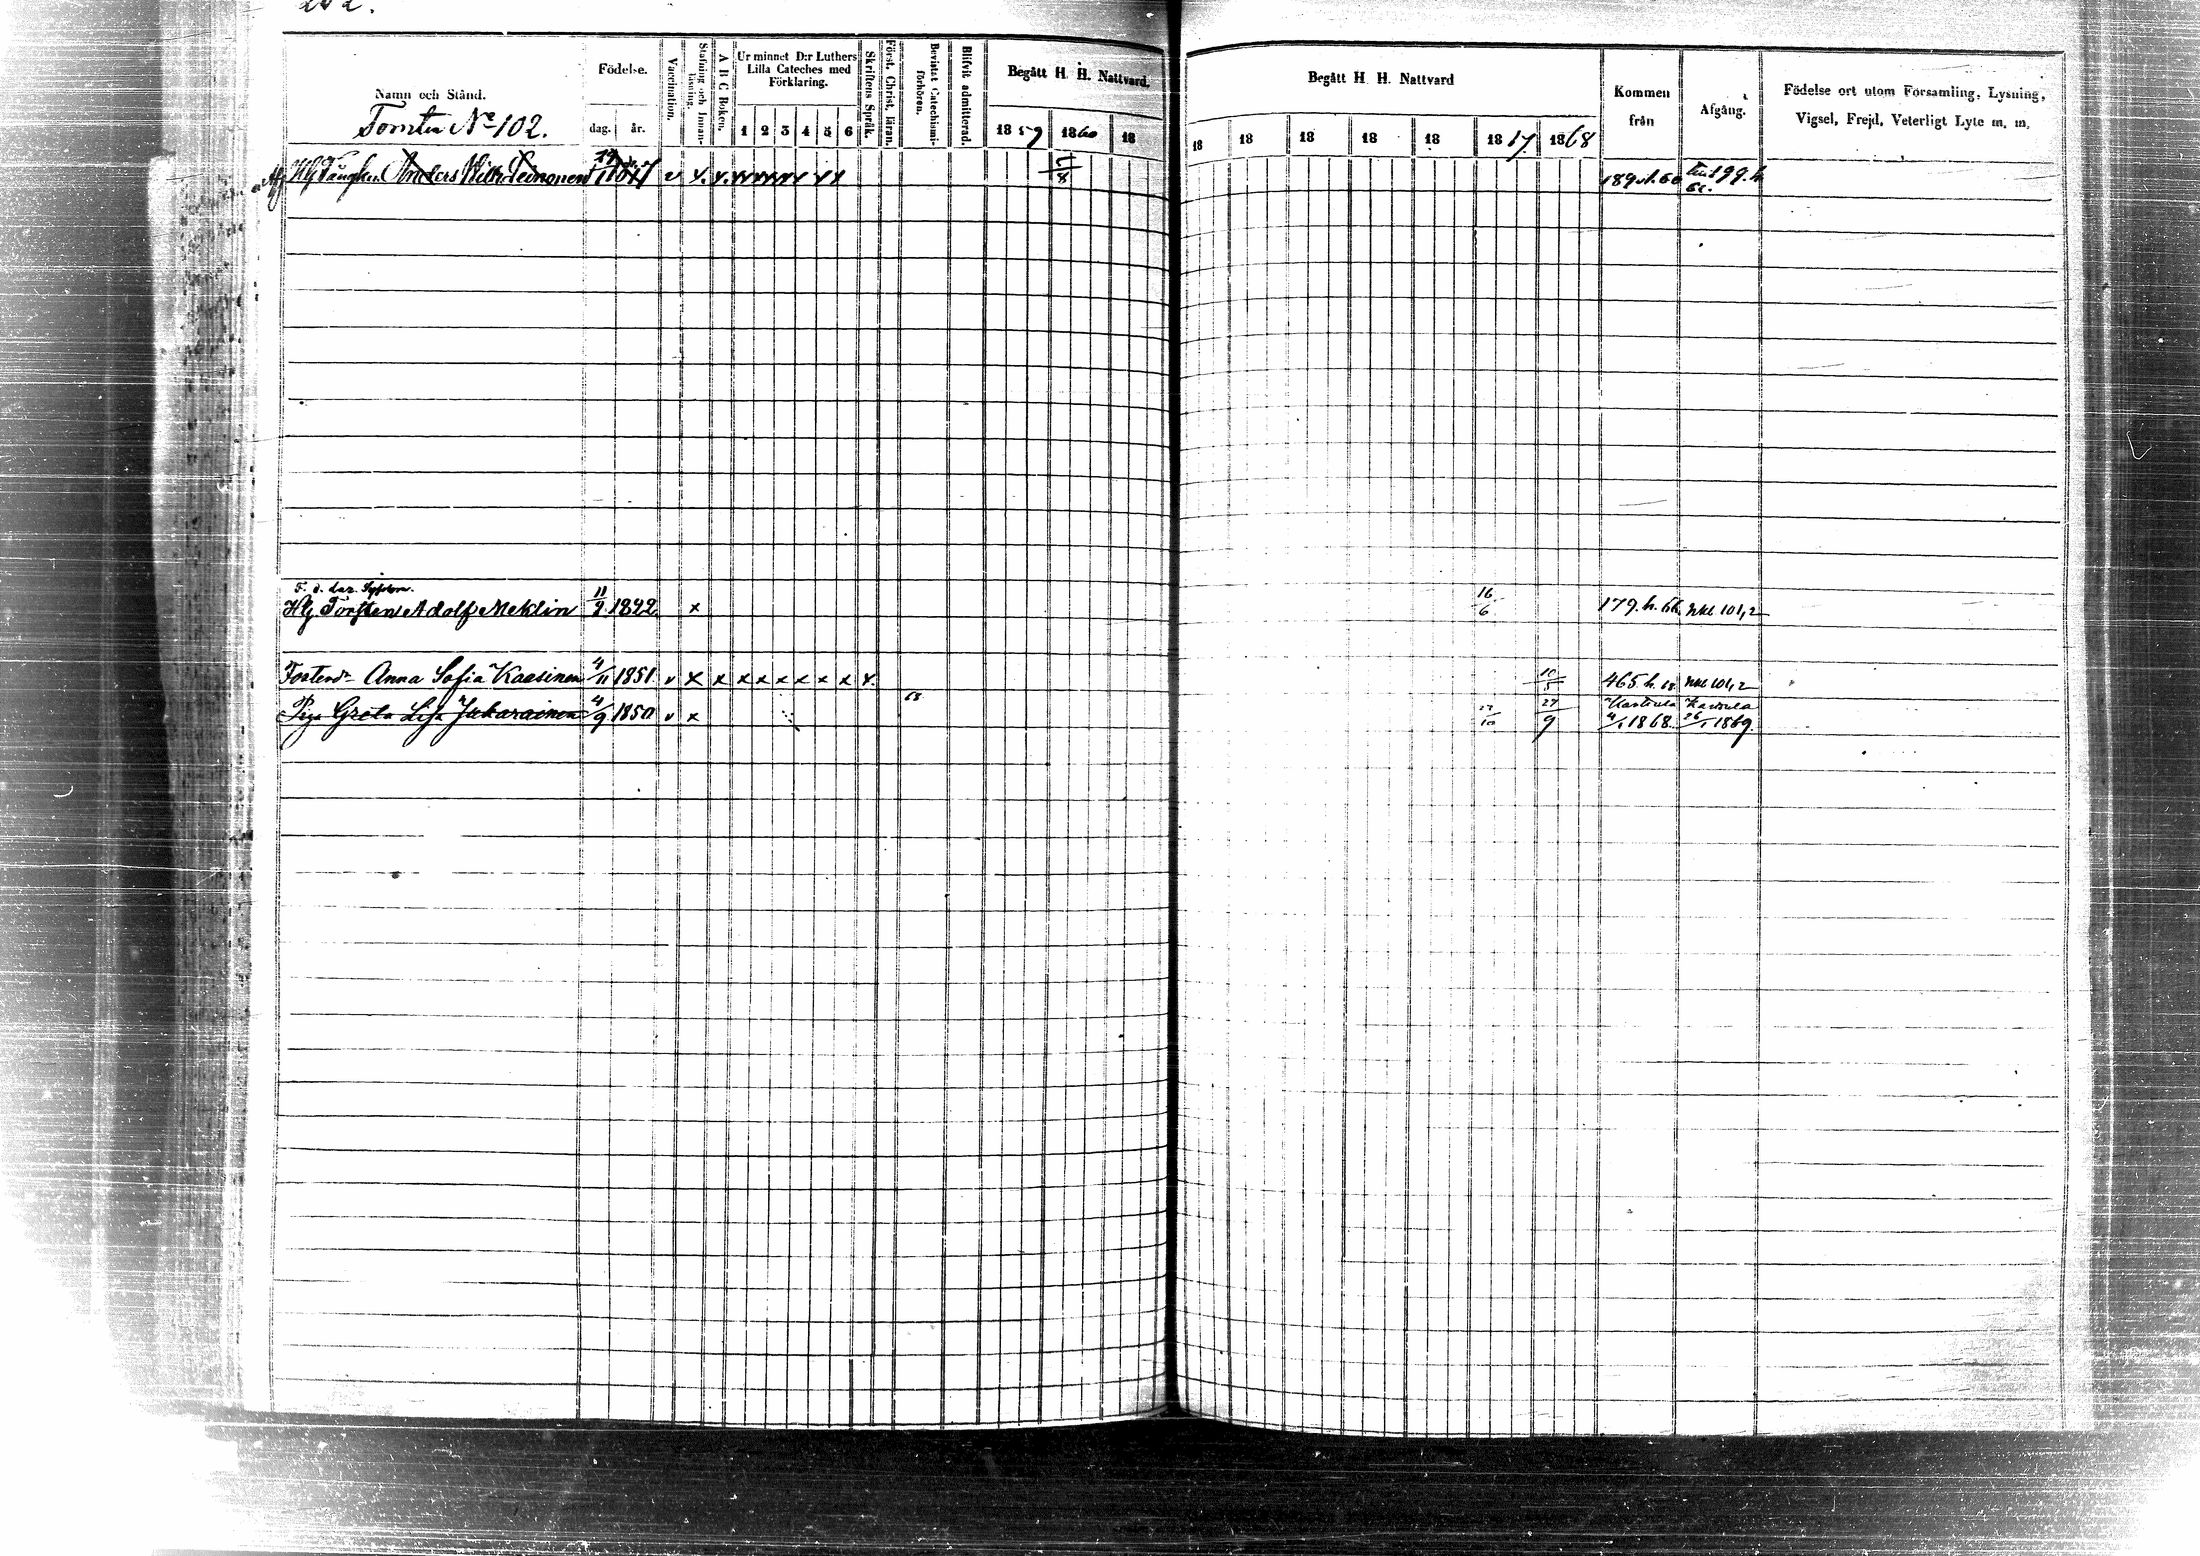 Namn och Stånd.
Tomten No 102.
Födelse.
dag. år.
Vaccination.
Stafning och Innanläsning.
A B C Boken.
Ur minnet D:r Luthers
Lilla Cateches med
Förklaring.
1 2 3 4 5 6
Skriftens Språk.
Först. Christ. läran.
Bevistat Catechismi-förhören.
Blifvit admitterad.
Begått H. H. Nattvard.
1859 1860 18
Begått H. H. Nattvard
18 18 18 18 18 1867 1868
Kommen
från
Afgång.
Födelse ort utom Församling, Lysning,
Vigsel, Frejd, Veterligt Lyte m. m.
Anders Wilh. Leinonen v x. x. 189
HG Torsten Adolf Meklin 11/2 1842 x 16/6 179. h. 66. nkl 101,2
Anna Sofia Kaasinen 4/11 1851 v x x x x x x x x x. 10/5 465. h. nkl 101,2
Piga Greta Lisa Jukarainen 4/9 1850 v x 68 27/10 27/9 4/1 1868. 26/1 1869.